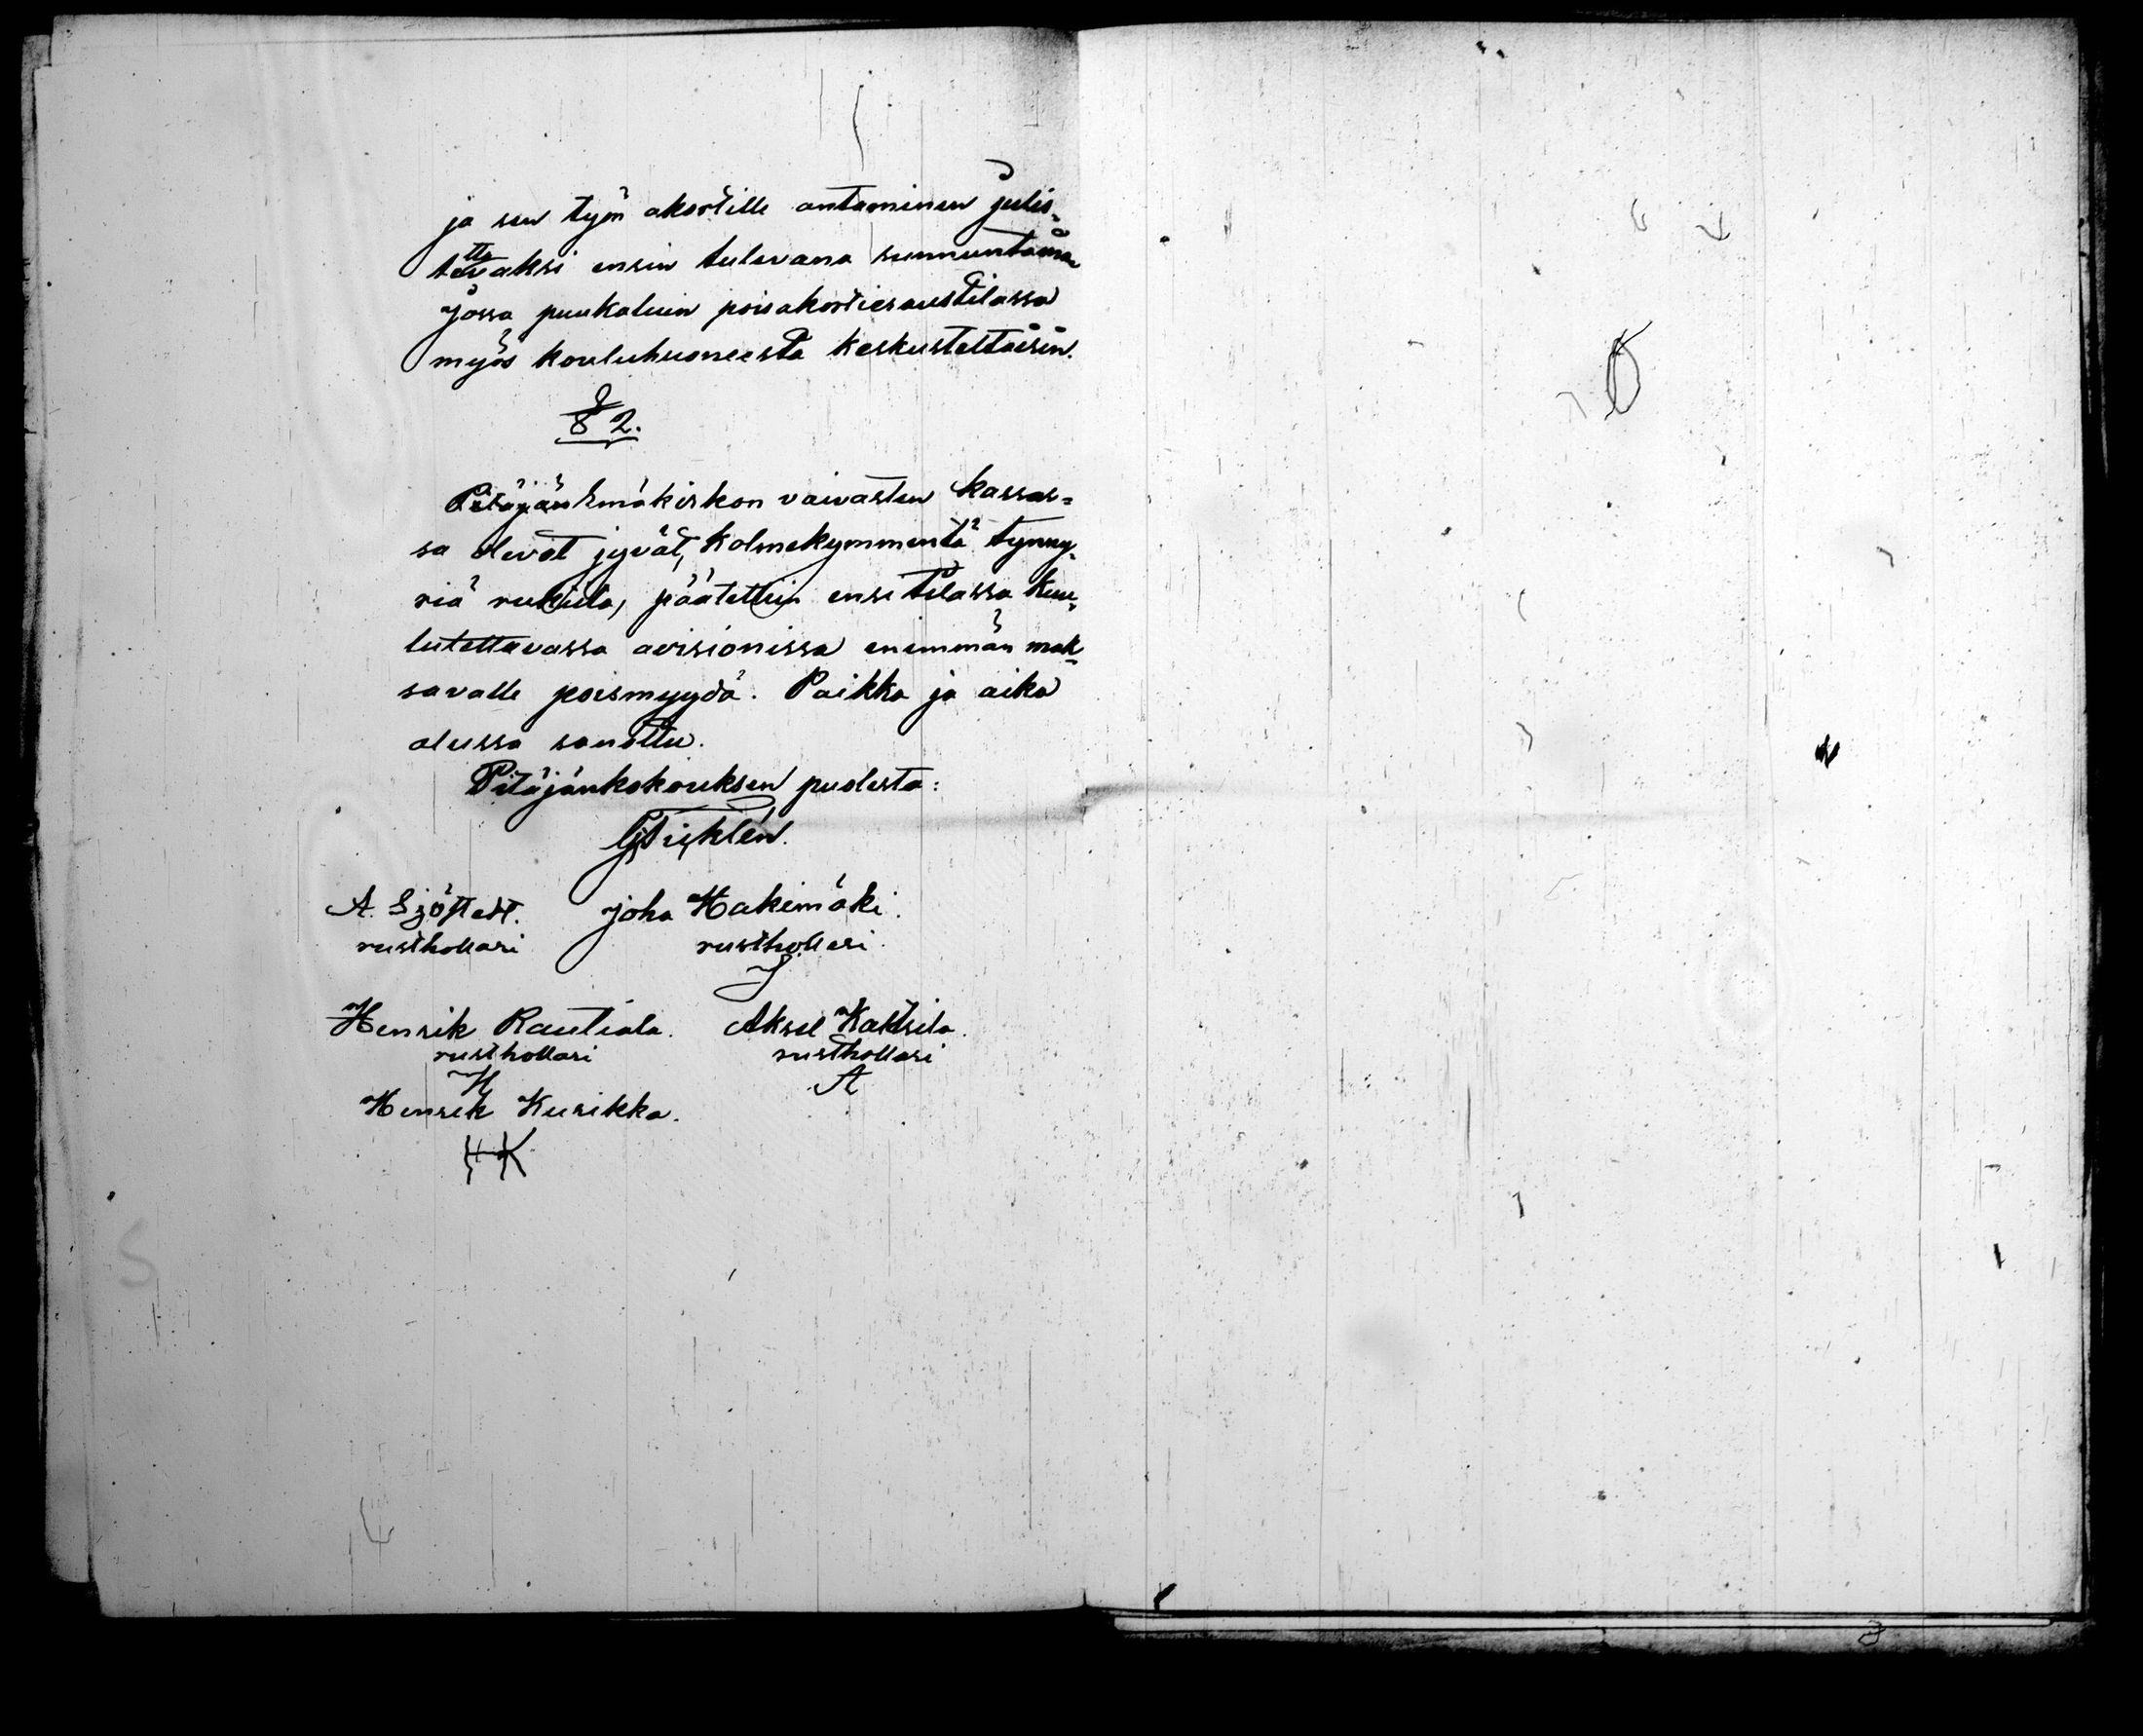 ja sen työn akortille antaminen julis-
tettavaksi ensin tulevana sunnuntaina
Jossa puukaluin poisakortieraustilassa
myös kouluhuoneesta keskusteltaisin.
§ 2.
Pitäjän Emäkirkon vaivasten kassas=
sa olevat jyvät, kolmekymmentä tynny-
riä rukiita, päätettiin ensi tilassa kuu-
lutettavassa avisionissa enimmän mak-
savalle poismyydä. Paikka ja aika
alussa sanottu.
Pitäjänkokouksen puolesta:
A. Sjöstedt. Joha Hakimäki.
rusthollari rusthollari.
J
Henrik Rautiala. Aksel Kaktsila.
rusthollari rusthollari
H A
Henrik Kurikka.
HK